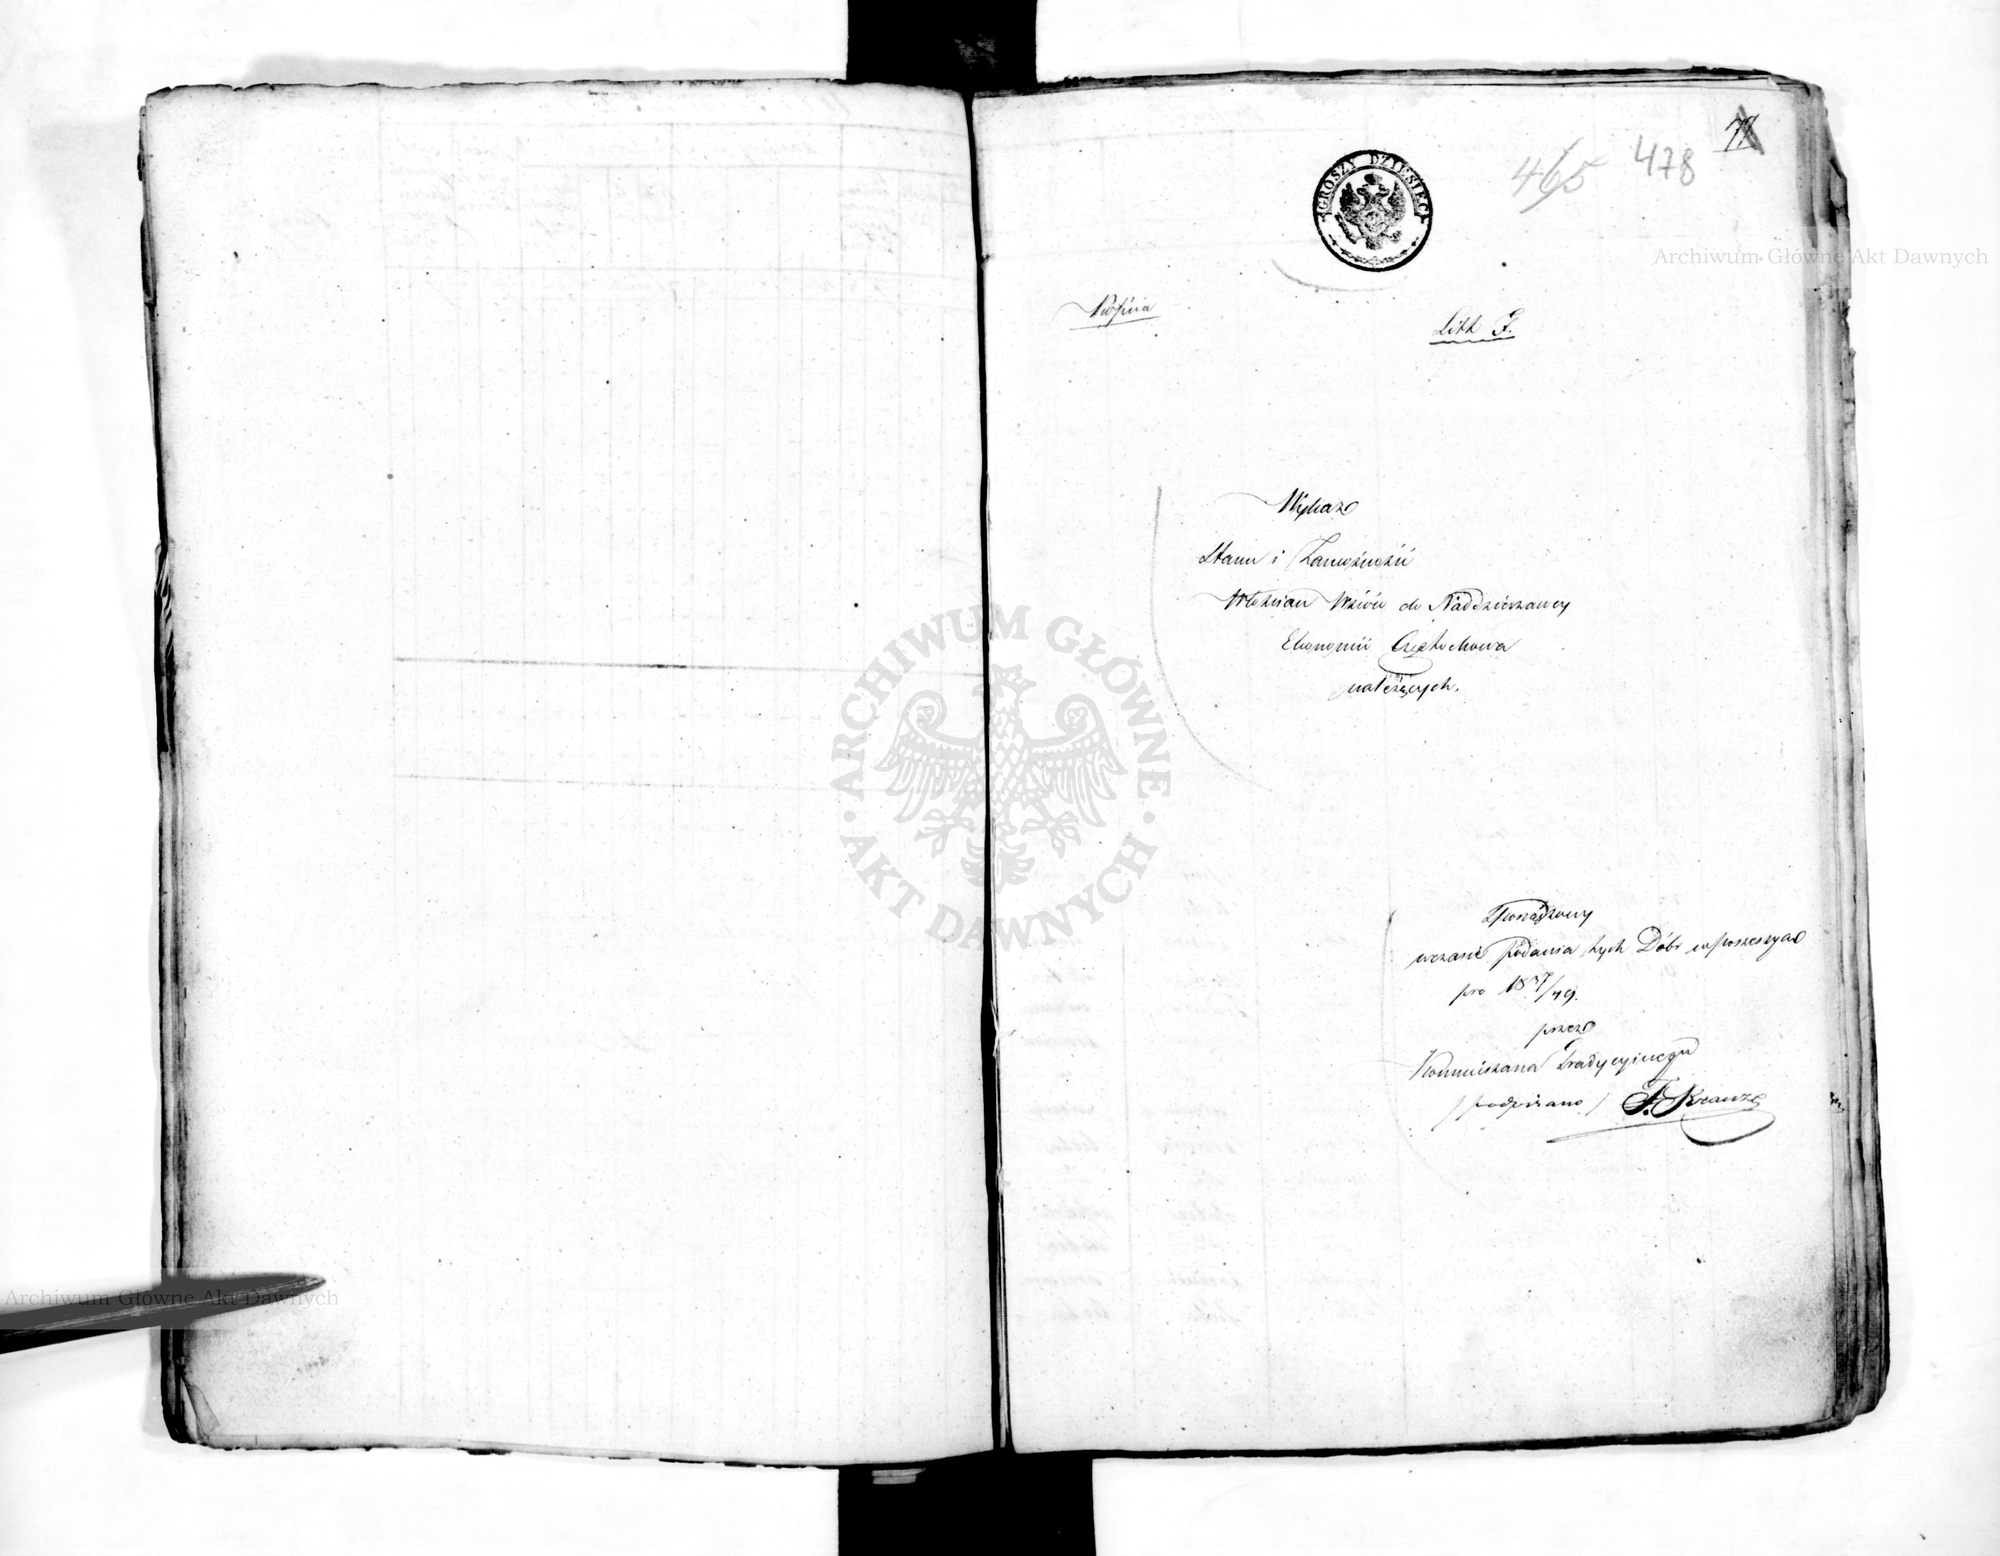 77
465 478
GROSZY DZIESIĘĆ
Kopia
Litt F.
Wykaz
Stanu i Zamożności
Włościan Wsiów do Naddzierżawcy
Ekonomii Częstochowa
należących.
Sporządzony
wczasie Podania tych Dóbr wposessyą
pro 1837/49.
przez
Kommissarza Tradycyjnego
/podpisano/ F. Krauze
Archiwum Główne Akt Dawnych
ARCHIWUM GŁÓWNE
AKT DAWNYCH
Archiwum Główne Akt Dawnych